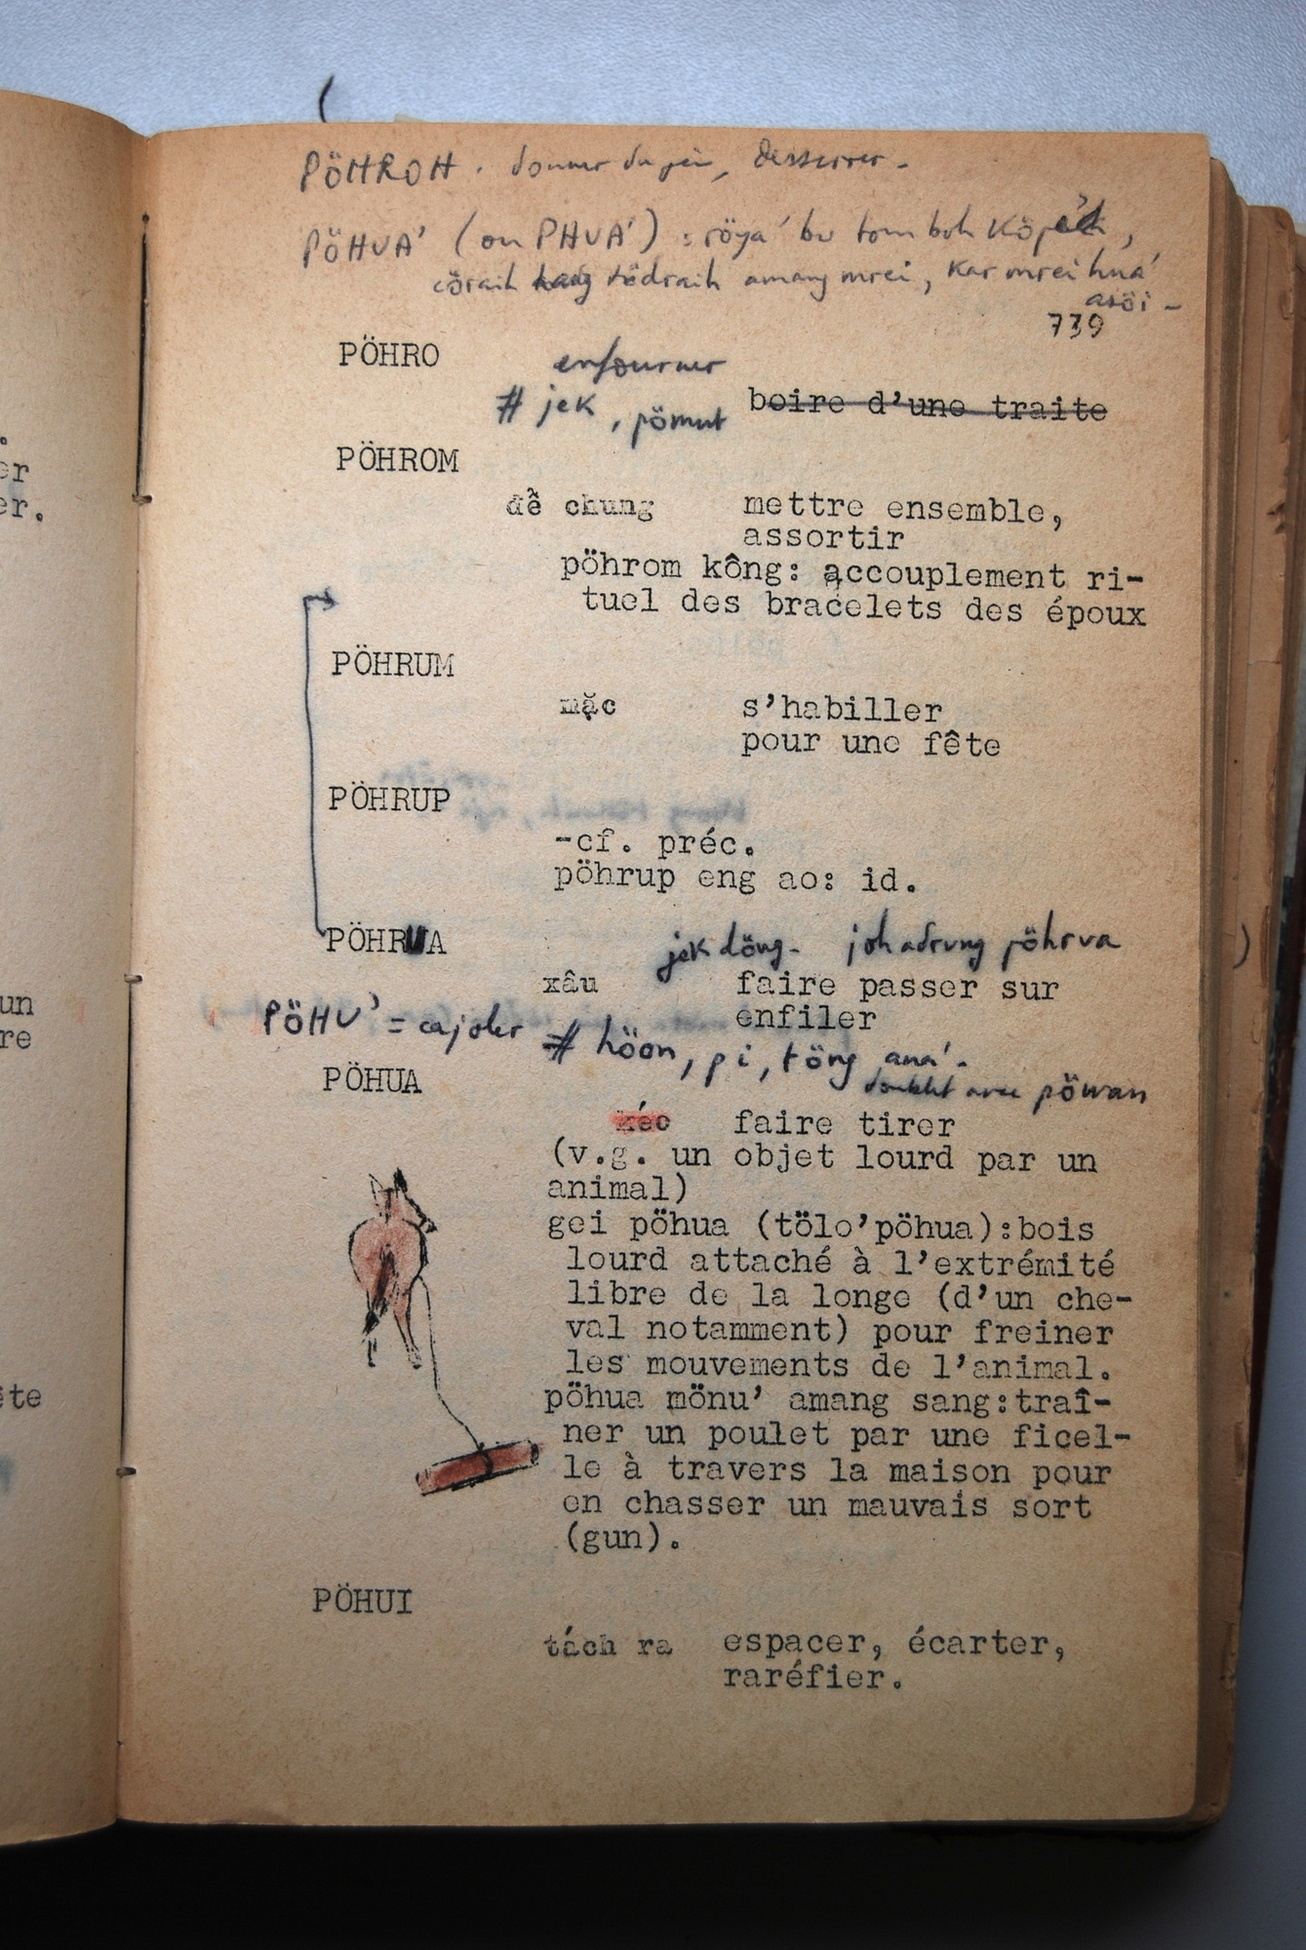 PÖHROH. donner du jeu, desserrer.
PÖHUA' (ou PHUA') : röya' bu tom boh
cöraih tödraih amang mrei, kar mrei hua'
asöi -
739
PÖHRO
enfourner
# jek, pömut boire d'une traite
PÖHROM
để chung mettre ensemble,
assortir
pöhrom kông: accouplement ri-
tuel des bracelets des époux
PÖHRUM
mặc s'habiller
pour une fête
PÖHRUP
-cf. préc.
pöhrup eng ao: id.
PÖHRUA jek döng- joh adrung pöhrua
xâu faire passer sur
enfiler
PÖHU' = cajoler # höon, pi, töng ana'.
PÖHUA doublet avec pöwan
kéo faire tirer
(v.g. un objet lourd par un
animal)
gei pöhua (tölo'pöhua):bois
lourd attaché à l'extrémité
libre de la longe (d'un che-
val notamment) pour freiner
les mouvements de l'animal.
pöhua mönu' amang sang:traî-
ner un poulet par une ficel-
le à travers la maison pour
en chasser un mauvais sort
(gun).
PÖHUI
tách ra espacer, écarter,
raréfier.
er
er.
un
re
te